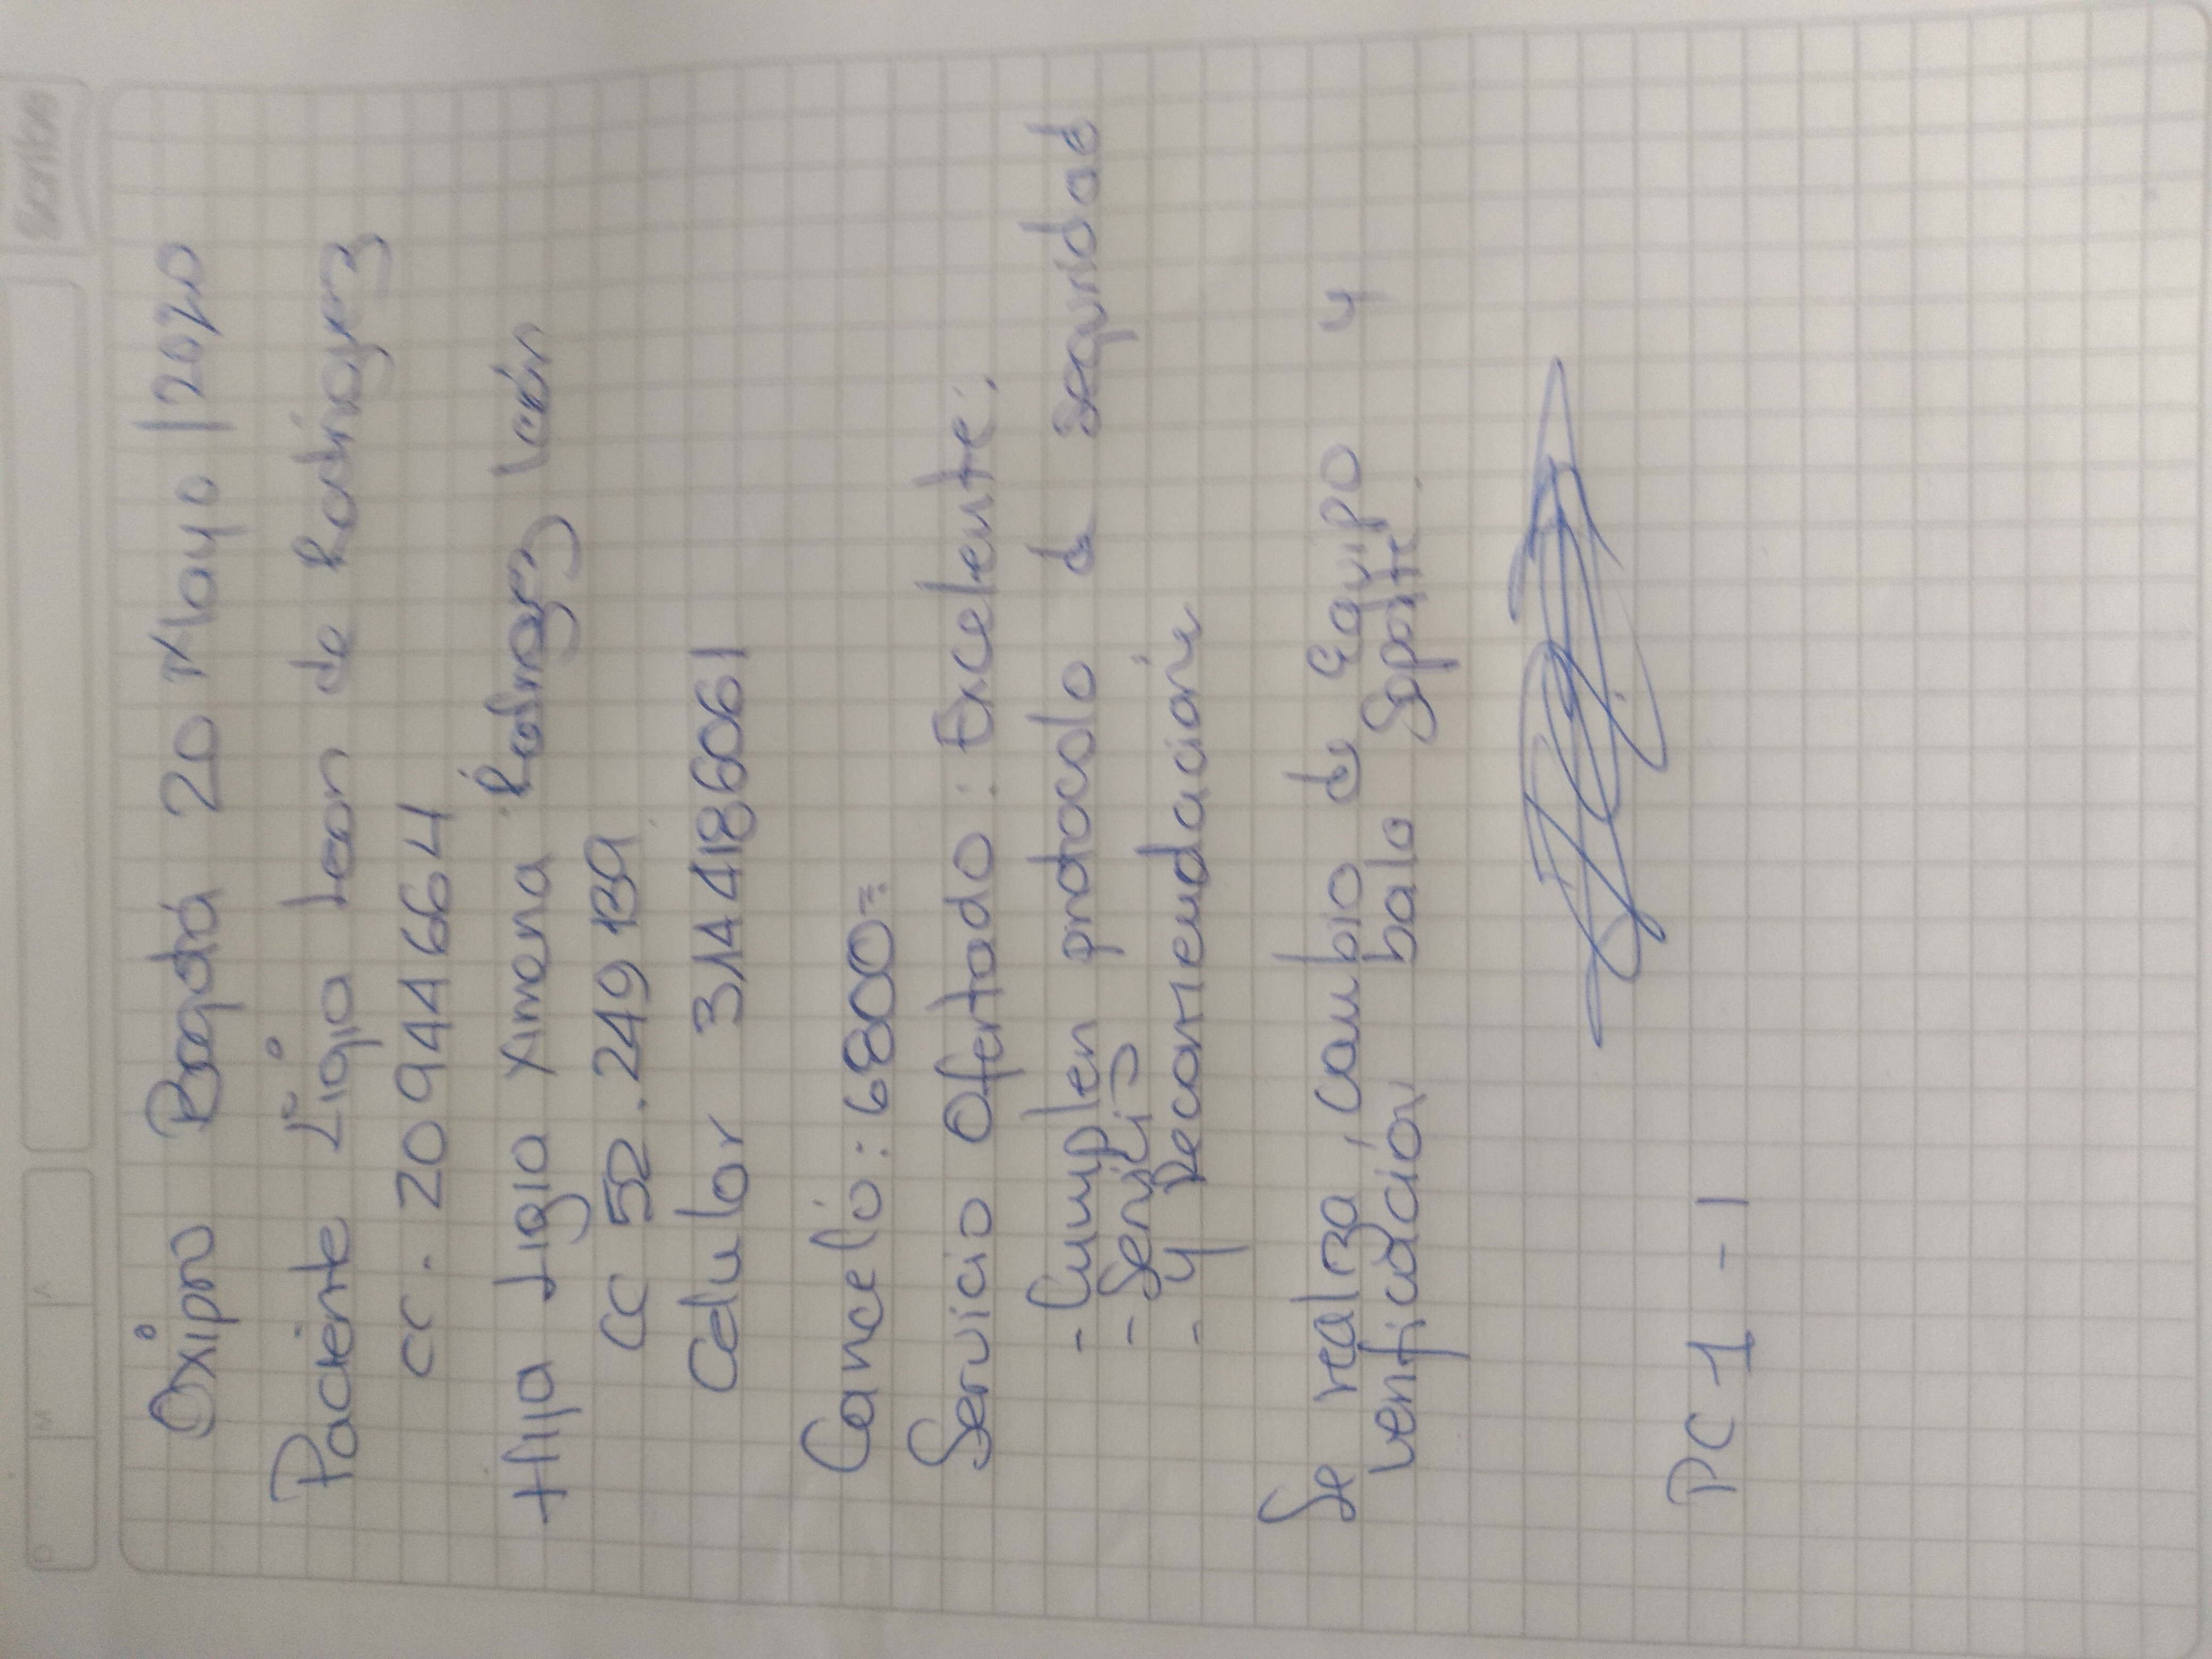 Oxipro Bogotá 20 Mayo | 2020
Paciente Ligia Leon de Rodriguez
CC. 20944664
Hija Ligia Ximena Rodriguez león
CC 52.249139
Celular 3144186061
Canceló: 6800=
Servicio Ofertado: Excelente.
- Cumplen protocolo de seguridad
- Servicio
- y Recomendación
Se realiza, cambio de Equipo y
verificación bala Soporte.
PC 1 - 1
D M A